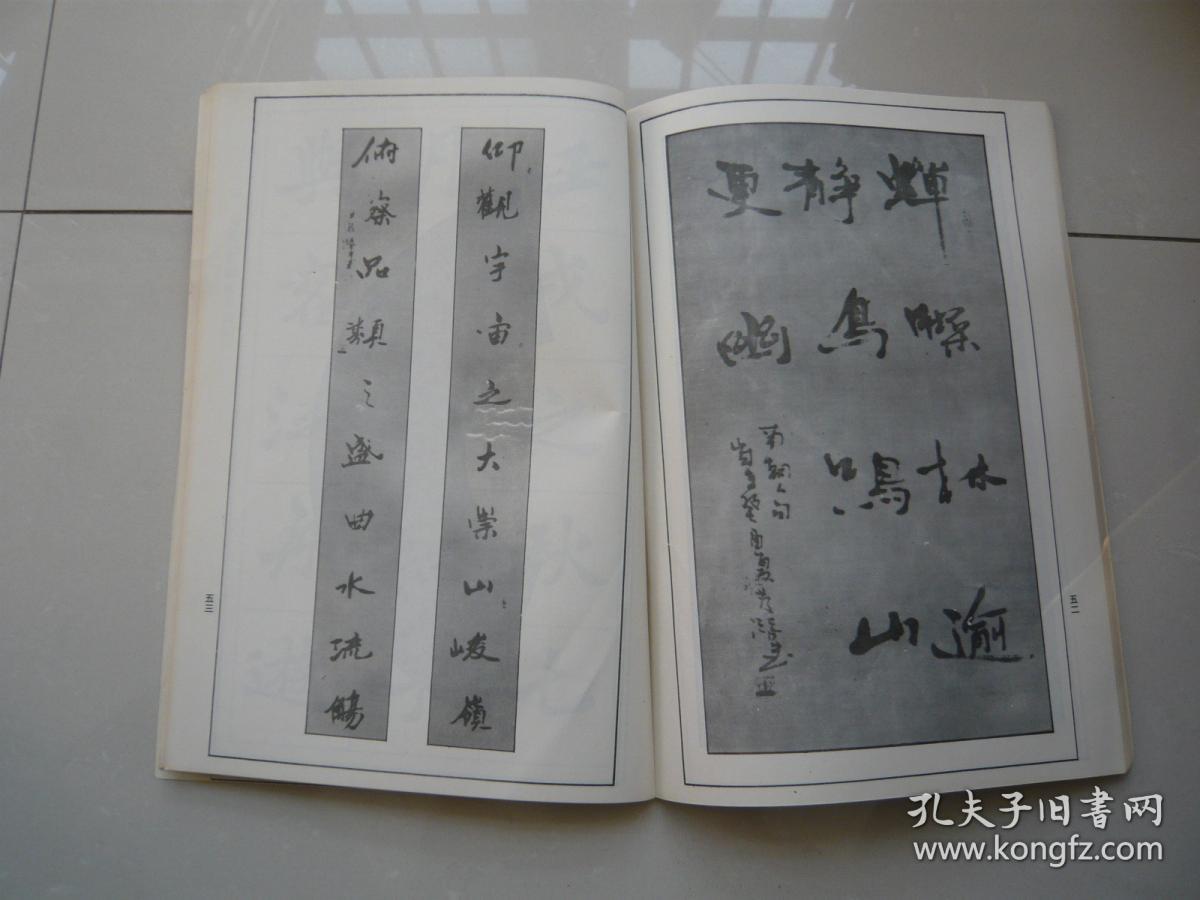 蟬噪林逾
静鳥鳴山
更幽
南朝人句
五二
仰觀宇宙之大崇山峻嶺
俯察品類之盛曲水流觴
五三
孔夫子旧书网
www.kongfz.com